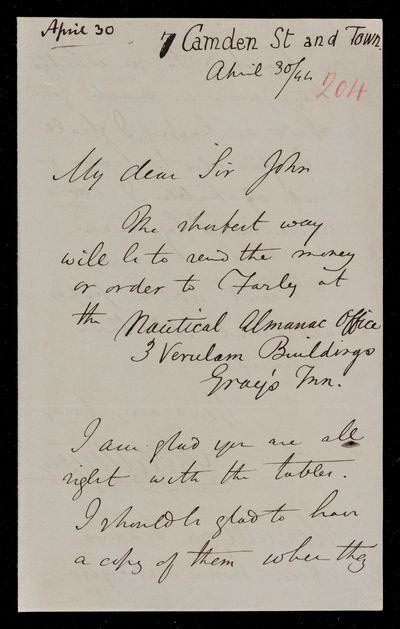 April 30
7 Camden St and Town.
April 30/44
204
My dear Sir John
The shortest way
will be to send the money
or order to Farley at
the Nautical Almanac Office
3 Verulam Buildings
Gray's Inn.
I am glad you are all
right with the tables.
I should be glad to have
a copy of them when they